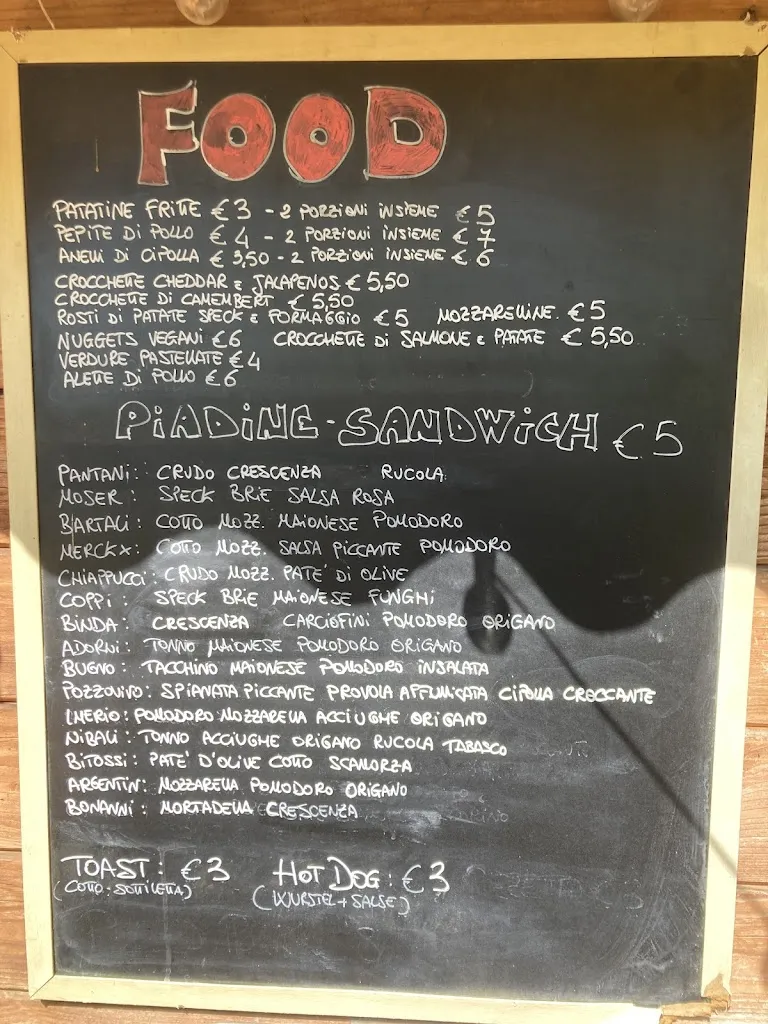 FOOD
PATATINE FRITTE € 3 - 2 PORZIONI INSIEME € 5
PEPITE DI POLLO € 4 - 2 PORZIONI INSIEME € 7
ANELLI DI CIPOLLA € 3,50 - 2 PORZIONI INSIEME € 6
CROCCHETTE CHEDDAR E JALAPENOS € 5,50
CROCCHETTE DI CAMEMBERT € 5,50
ROSTI DI PATATE SPECK E FORMAGGIO € 5 MOZZARELLINE € 5
NUGGETS VEGANI € 6 CROCCHETTE DI SALMONE E PATATE € 5,50
VERDURE PASTELLATE € 4
ALETTE DI POLLO € 6
PIADINE-SANDWICH € 5
PANTANI: CRUDO CRESCENZA RUCOLA
MOSER: SPECK BRIE SALSA ROSA
BARTALI: COTTO MOZZ. MAIONESE POMODORO
MERCKX: COTTO MOZZ. SALSA PICCANTE POMODORO
CHIAPPUCCI: CRUDO MOZZ. PATE' DI OLIVE
COPPI: SPECK BRIE MAIONESE FUNGHI
BINDA: CRESCENZA CARCIOFINI POMODORO ORIGANO
ADORNI: TONNO MAIONESE POMODORO ORIGANO
BUGNO: TACCHINO MAIONESE POMODORO INSALATA
POZZOVIVO: SPIANATA PICCANTE PROVOLA AFFUMICATA CIPOLLA CROCCANTE
INERIO: POMODORO MOZZARELLA ACCIUGHE ORIGANO
NIBALI: TONNO ACCIUGHE ORIGANO RUCOLA TABASCO
BITOSSI: PATE' D'OLIVE COTTO SCAMORZA
ARGENTIN: MOZZARELLA POMODORO ORIGANO
BONANNI: MORTADELLA CRESCENZA
TOAST: € 3 HOT DOG: € 3
(COTTO-SOTTILETTA) (WURSTEL + SALSE)